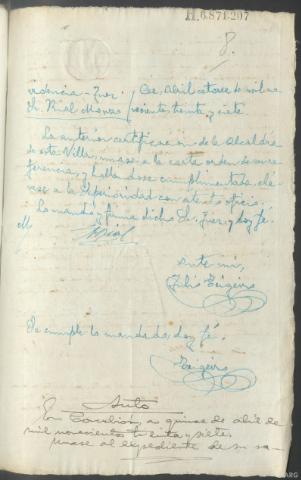 H.6.871.207
8.
videncia-Juez
Sr. Rial Moura
Cee, Abril catorce de mil no
vecientos treinta y siete
La anterior certificacion de la Alcaldía
de esta Villa, unase a la carta orden de su re
ferencia, y hallandose cumplimentada, ele
vese a la Superioridad con atento oficio.
Lo mandó y firma dicho Sr. Juez y doy fé.
Rial
Ante mi,
Se cumple lo mandado, doy fé.
Auto
En Corcubión, a quince de abril de
mil novecientos treinta y siete,
unase al expediente de su ra-